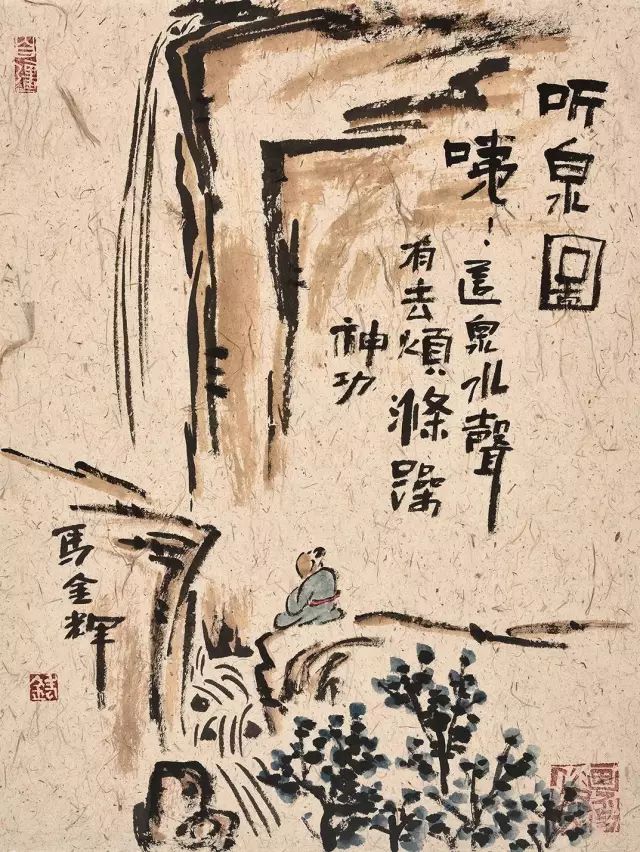 听泉圖
咦！這泉水聲
有去煩滌躁
神功
馬金輝